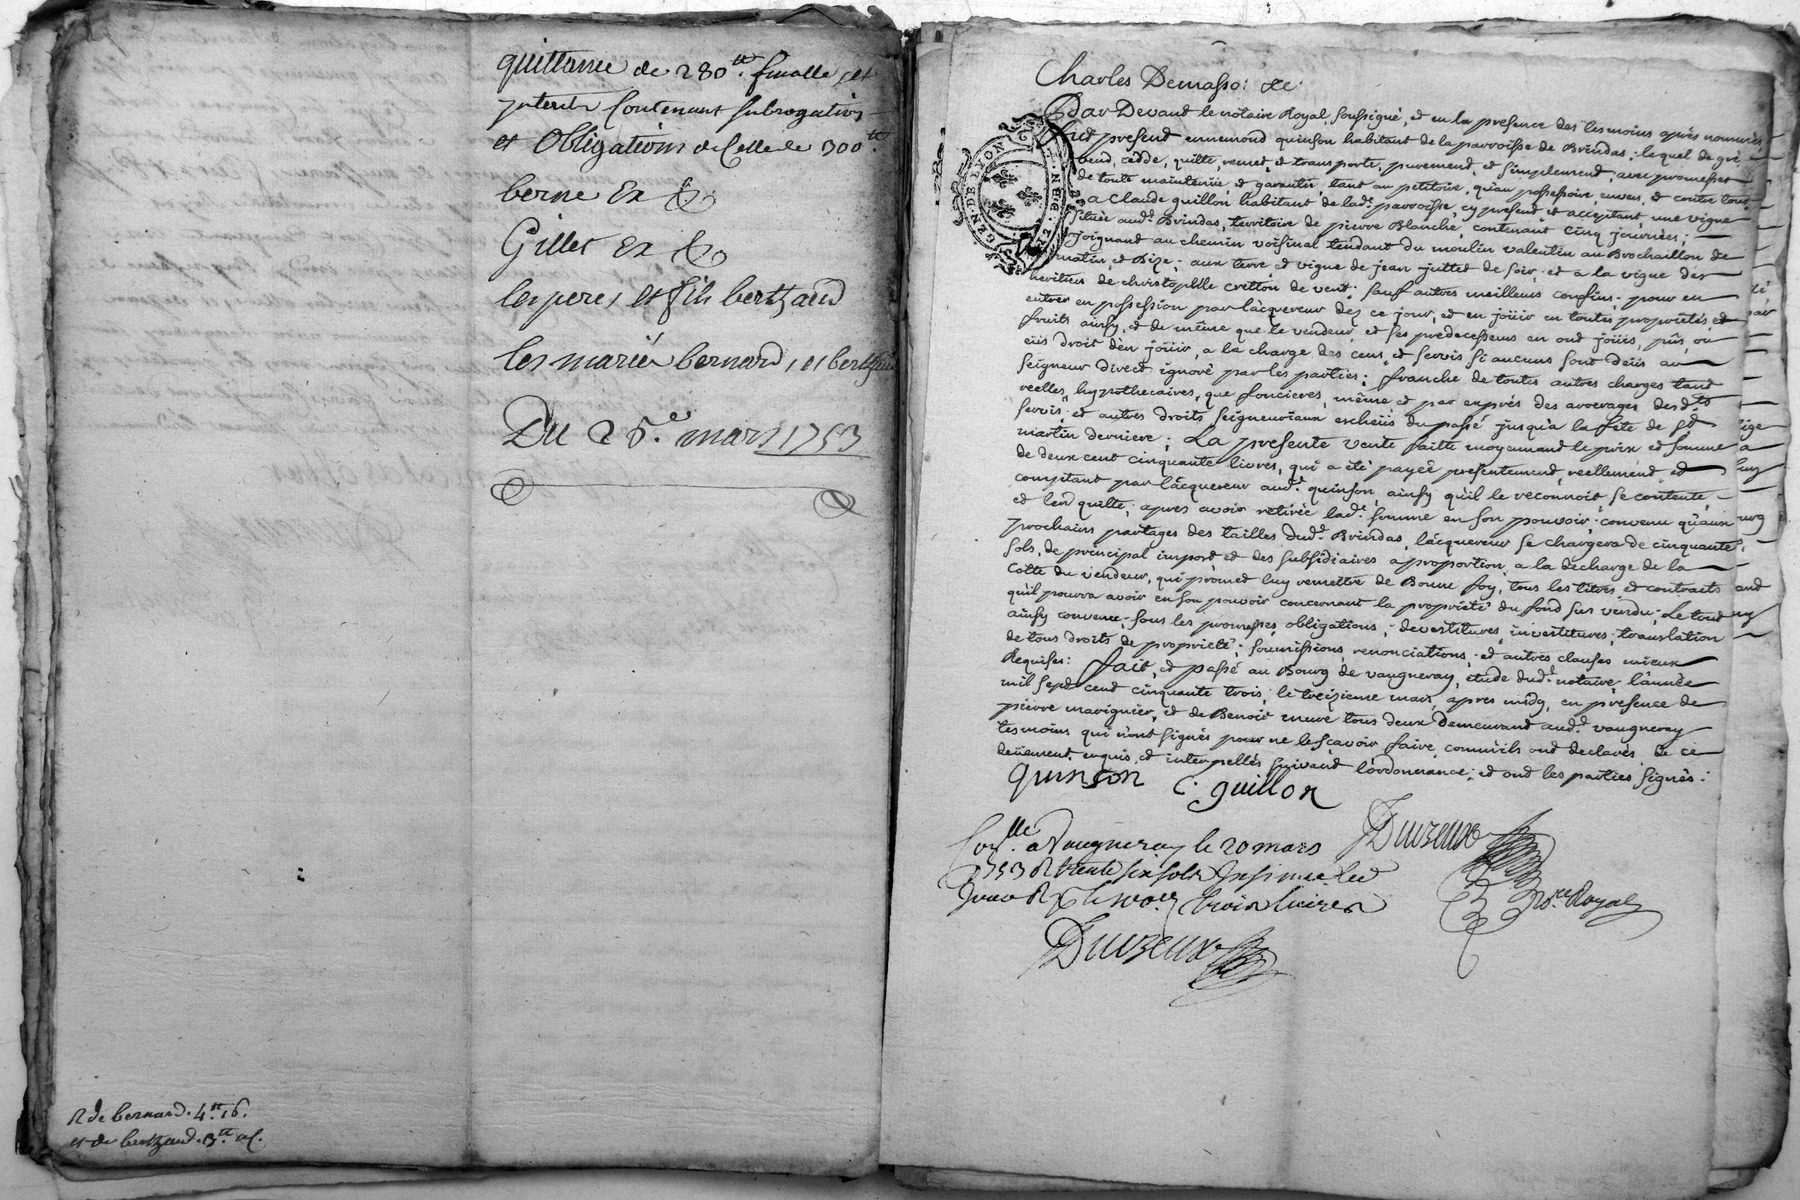 quittance de 280tt. finalle, et
jnterests Contenant subrogation
et Obligations de Celle de 300tt.
berne Ex &
Gillet Ex &
les pere, et fils bertrand
les mariés bernard, et bertrand
Du 25.e mars 1753
R de bernard. 4.tt 16.
et de bertrand. 3.tt
Charles Demasso: &c:
Par Devant le notaire Royal, soussigné, et en la presence des tesmoins aprés nommés,
Fut present ennemond quinson habitant de la parroisse de Brindas; lequel de gré
vend, cedde, quitte, remet, et transporte, purement, et simplement, avec promesses
de toute maintenüe, et garantie, tant au petitoire, qu'au possessoire envers, et contre tous
a Claude guillon habitant de lad.e parroisse, cy present, et acceptant une vigne
située aud.t Brindas, territoire de pierre Blanche, contenant cinq journées;
Joignant au chemin voisinal tendant du moulin valentin au Brochaillon de
matin, et Bize; aux terre, et vigne de jean juttet de soir; et a la vigne des
heritiers de christophle cretton de vent; sauf autres meilleurs confins; pour en
entrer en possession par l'acquereur dez ce jour, et en joüir en toutes proprietés, et
fruits ainsy, et de même que le vendeur, et ses predecesseurs en ont joüis, pûs, ou
eüs droit d'en joüir, a la charge des cens, et servis si aucuns sont deüs au
seigneur direct ignoré par les parties; franche de toutes autres charges tant
reelles, hypothecaires, que foncieres, même et par exprés des arrerages desd.ts
servis, et autres droits seigneuriaux escheüs du passé jusqu'a la fête de st
martin derniere; La presente vente faitte moyennant le prix et somme
de deux cent cinquante livres, qui a été payée presentement, reellement, et
comptant par l'acquereur aud.t quinson, ainsy qu'il le reconnoit, se contente,
et l'en quitte; apres avoir retirée lad.e somme en son pouvoir; convenu qu'aux
prochains partages des tailles dud.t Brindas, l'acquereur se chargera de cinquante
sols, de principal import et des subsidiaires a proportion, a la décharge de la
Cotte du vendeur, qui promet luy remettre de Bonne foy, tous les titres, et contracts
qu'il pourra avoir en son pouvoir concernant la proprieté du fond sus vendu; Le tout
ainsy convenu, sous les promesses, obligations, devestitures, investitures, translation
de tous droits de proprieté; soumissions, renonciations, et autres clauses mieux
Requises: fait, et passé au Bourg de vaugneray, etude dud.t notaire, l'année
mil sept cent cinquante trois, le treizieme mars, apres midy, en presence de
pierre marignier, et de Benoit neuve tous deux demeurant aud.t vaugneray
tesmoins qui n'ont signés pour ne le sçavoir faire, comm'ils ont declarés de ce
deüement enquis, et interpellés suivant l'ordonnance; et ont les parties signés:
quinson C. guillon
Duvzeux
Con.lle a Vaugneray le 20 mars
1753 R trente six sols Insinué led
Jour R trois livres
nore Royal
Duvzeux
GEN. DE LYON